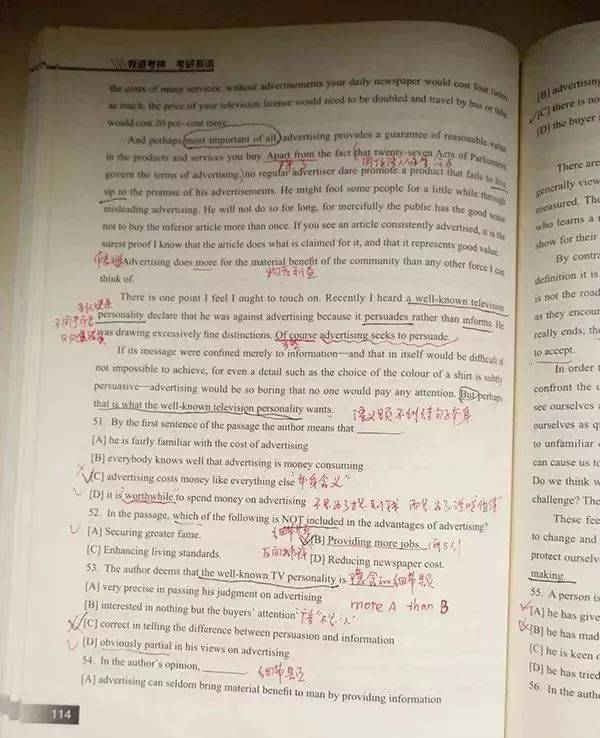 有道考神 考研英语
the costs of many services: without advertisements your daily newspaper would cost four times
as much, the price of your television license would need to be doubled and travel by bus or tube
would cost 20 per-cent more.
And perhaps most important of all, advertising provides a guarantee of reasonable value
in the products and services you buy. Apart from the fact that twenty-seven Acts of Parliament
govern the terms of advertising, no regular advertiser dare promote a product that fails to live
up to the promise of his advertisements. He might fool some people for a little while through
misleading advertising. He will not do so for long, for mercifully the public has the good sense
not to buy the inferior article more than once. If you see an article consistently advertised, it is the
surest proof I know that the article does what is claimed for it, and that it represents good value.
Advertising does more for the material benefit of the community than any other force I can
think of.
物质利益
There is one point I feel I ought to touch on. Recently I heard a well-known television
personality declare that he was against advertising because it persuades rather than informs. He
不同于作者
was drawing excessively fine distinctions. Of course advertising seeks to persuade.
If its message were confined merely to information—and that in itself would be difficult if
not impossible to achieve, for even a detail such as the choice of the colour of a shirt is subtly
persuasive—advertising would be so boring that no one would pay any attention. But perhaps
that is what the well-known television personality wants.
51. By the first sentence of the passage the author means that
[A] he is fairly familiar with the cost of advertising
[B] everybody knows well that advertising is money consuming
[C] advertising costs money like everything else "本身含义"
[D] it is worthwhile to spend money on advertising
52. In the passage, which of the following is NOT included in the advantages of advertising?
[A] Securing greater fame. 细节题 [B] Providing more jobs.
[C] Enhancing living standards. [D] Reducing newspaper cost.
53. The author deems that the well-known TV personality is 细节题
[A] very precise in passing his judgment on advertising
more A than B
[B] interested in nothing but the buyers' attention
[C] correct in telling the difference between persuasion and information
[D] obviously partial in his views on advertising
54. In the author's opinion, 细节题
[A] advertising can seldom bring material benefit to man by providing information
114
[B] advertising
[C] there is no
[D] the buyer
There are
generally view
measured. The
who learns a
show for their
By contra
definition it is
is not the road
as they encour
really ends; the
to accept.
In order t
confront the u
see ourselves a
ourselves as q
to unfamiliar
can cause us to
Do we think w
challenge? The
These fee
to change and
protect ourselv
making.
55. A person is
[A] he has give
[B] he has made
[C] he is keen o
[D] he has tried
56. In the autho